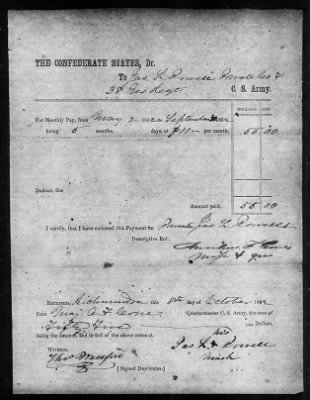 THE CONFEDERATE STATES, Dr.
To Jas. L. Powell Private Co
38 Geo Regt C. S. Army.
DOLLARS. CTS.
For Monthly Pay, from May 2 1862 to September
being 5 months, days at $11 per month, 55 00
Deduct, the
Amount paid, 55 00
I certify, that I have endorsed this Payment to Private Jas L Powell's
Descriptive Rol.
RECEIVED, Richmond this 8th day of October 1862
from Maj
Quartermaster C. S. Army, the sum of
Fifty Five 100 Dollars.
being the amount, and in full of the above account.
his
Jas L X Powell
WITNESS, mark
Thos
[Signed Duplicates.]